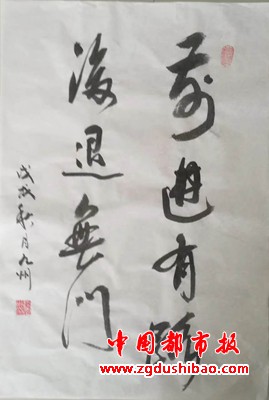 前進有路
後退無門
戊戌秋月九州
中国都市报
www.zgdushibao.com